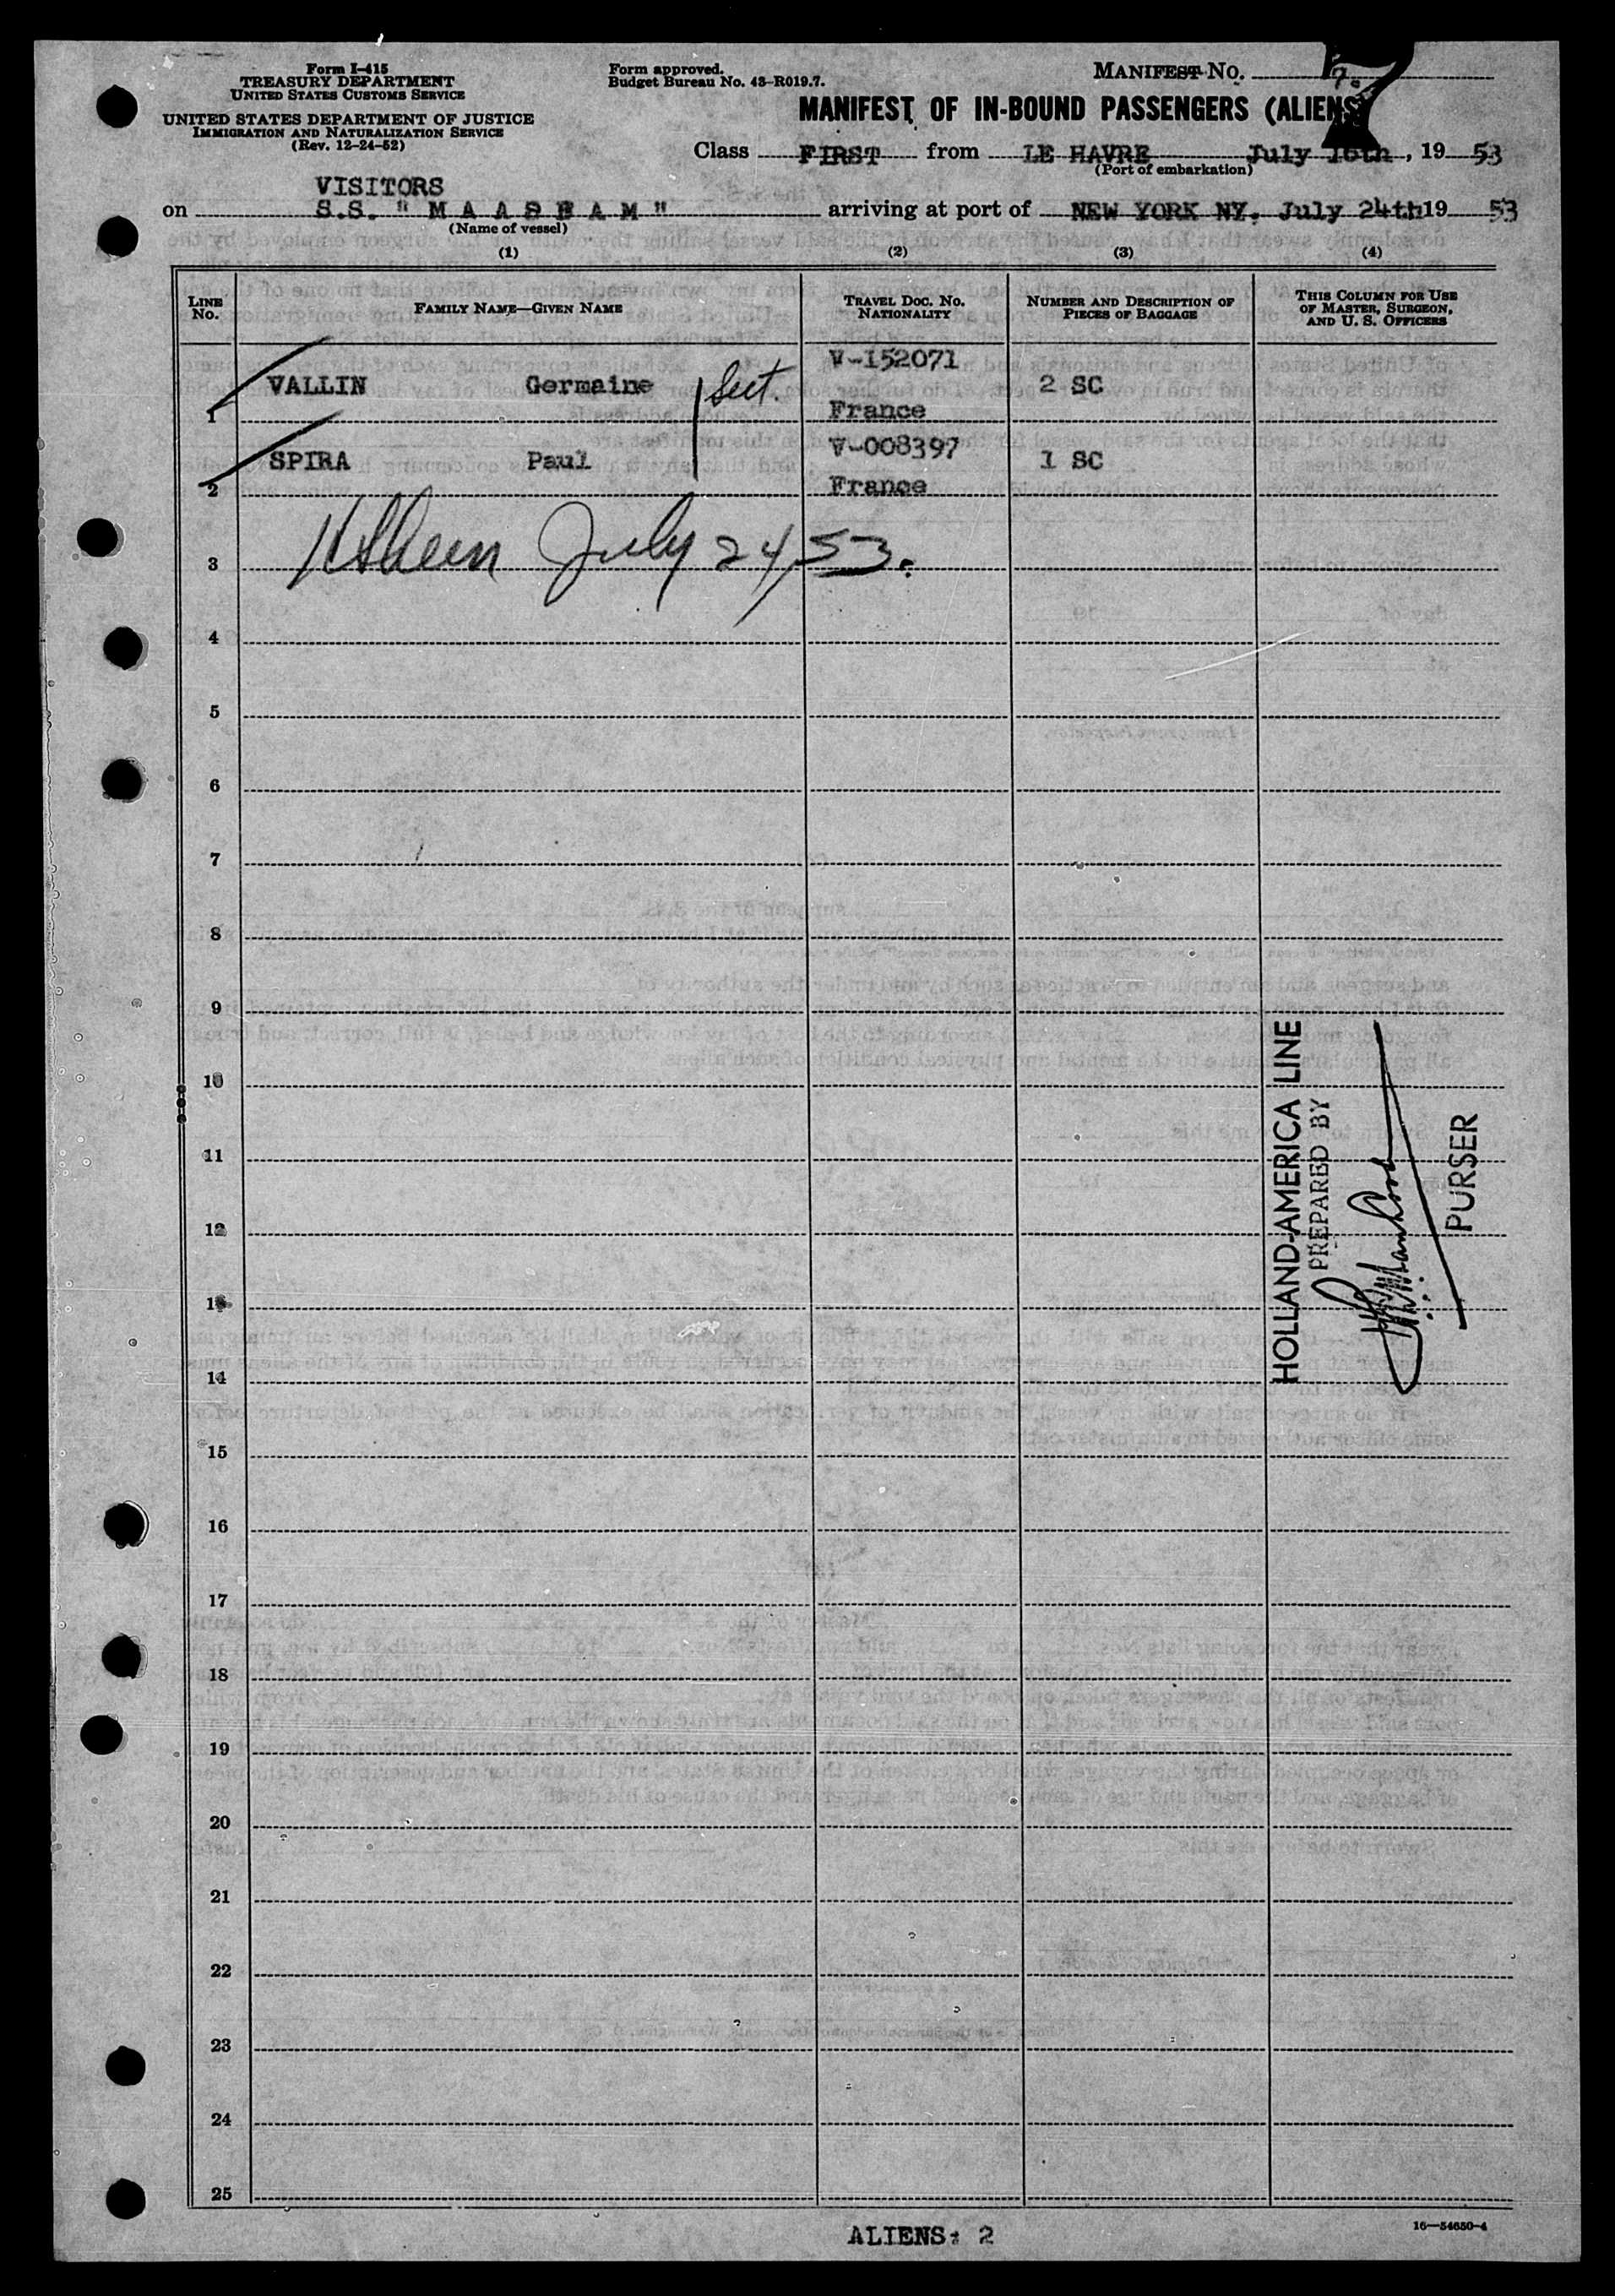 Form I-415
TREASURY DEPARTMENT
UNITED STATES CUSTOMS SERVICE
UNITED STATES DEPARTMENT OF JUSTICE
IMMIGRATION AND NATURALIZATION SERVICE
(Rev. 12-24-52)
Form approved.
Budget Bureau No. 43-R019.7.
MANIFEST No. 7
MANIFEST OF IN-BOUND PASSENGERS (ALIENS)
Class FIRST from LE HAVRE July 16th, 19 53
(Port of embarkation)
VISITORS
on S.S. "MAASDAM" arriving at port of NEW YORK NY. July 24th 19 53
(Name of vessel)
(1) (2) (3) (4)
LINE No. FAMILY NAME—GIVEN NAME TRAVEL DOC. No. NATIONALITY NUMBER AND DESCRIPTION OF PIECES OF BAGGAGE THIS COLUMN FOR USE OF MASTER, SURGEON, AND U. S. OFFICERS
V-152071
VALLIN Germaine 2 SC
1 France
V-008397
SPIRA Paul 1 SC
2 France
3 July 24, 53.
4
5
6
7
8
9
10
11
12
13
14
15
16
17
18
19
20
21
22
23
24
25
HOLLAND-AMERICA LINE
PREPARED BY
PURSER
ALIENS: 2
16—54650-4